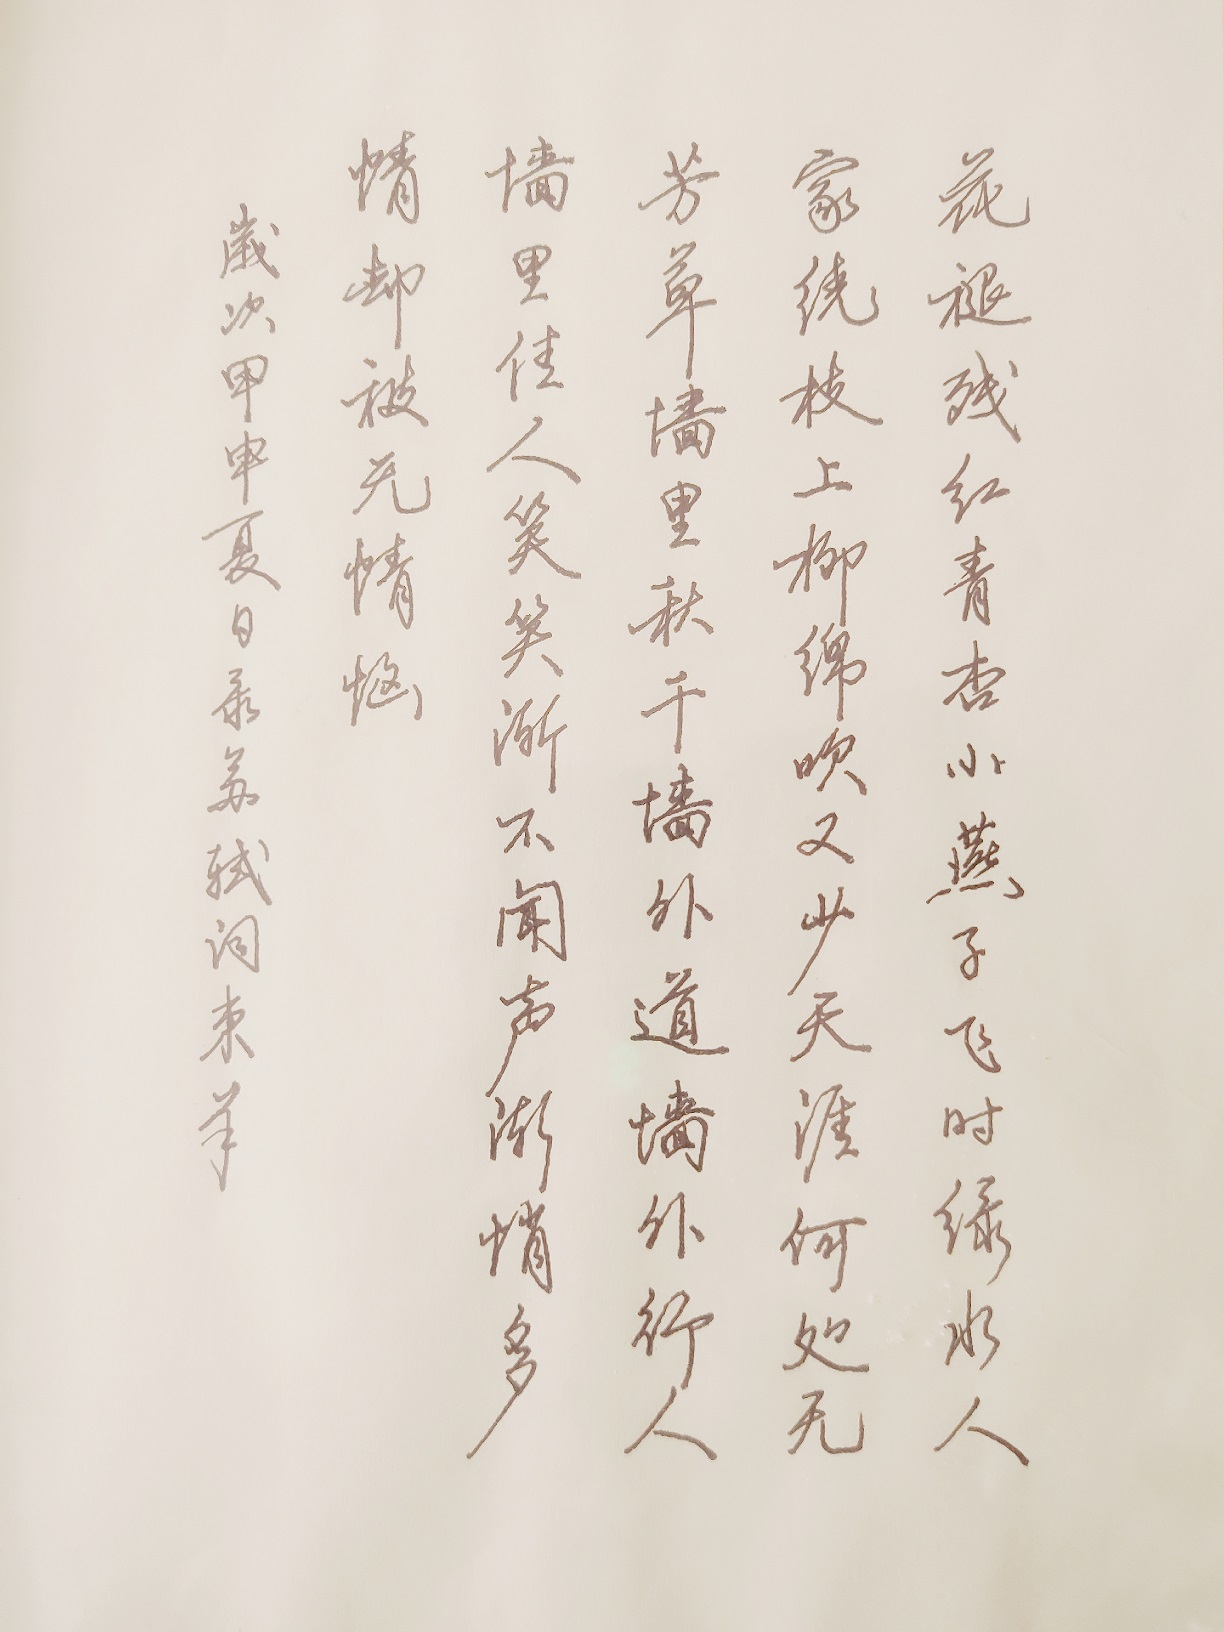 花褪残红青杏小燕子飞时绿水人
家绕枝上柳绵吹又少天涯何处无
芳草墙里秋千墙外道墙外行人
墙里佳人笑笑渐不闻声渐悄多
情却被无情恼
岁次甲申夏日录苏轼词東羊